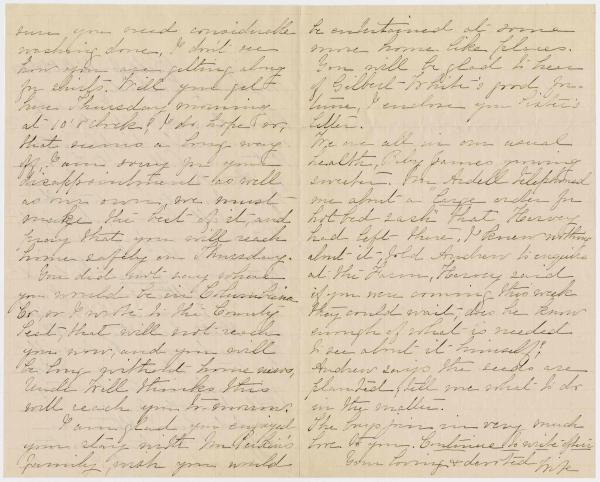 sure you need considerable
washing done, I don't see
how you are getting along
for shirts. Will you get
here Thursday morning
at 10 o'clock? I do hope so,
that seems a long way
off. I am sorry for your
disappointment as well
as my own, we must
make the best of it, and
pray that you will reach
home safely on Thursday.
You did not say where
you would be in Columbiana
Co, so I wrote to the County
Seat, that will not reach
you now, and you will
be long without home news,
Uncle Will thinks this
will reach you tomorrow.
I am glad you enjoyed
your stay with Mr
family, wish you could
be entertained at some
more home like places.
You will be glad to hear
of Gilbert White's good for-
tune, I enclose you sister's
letter.
We are all in our usual
health, Baby James growing
sweeter. Mr Ardell telephoned
me about a large order for
hot bed sash that Hervey
had left there, I knew nothing
about it, told Andrew to enquire
at the Farm, Hervey said
if you were coming this week
they could wait, does he know
enough of what is needed
to see about it himself?
Andrew says the seeds are
planted, tell me what to do
in the matter.
The boys join in very much
love to you. Continue to write often
Your loving & devoted wife